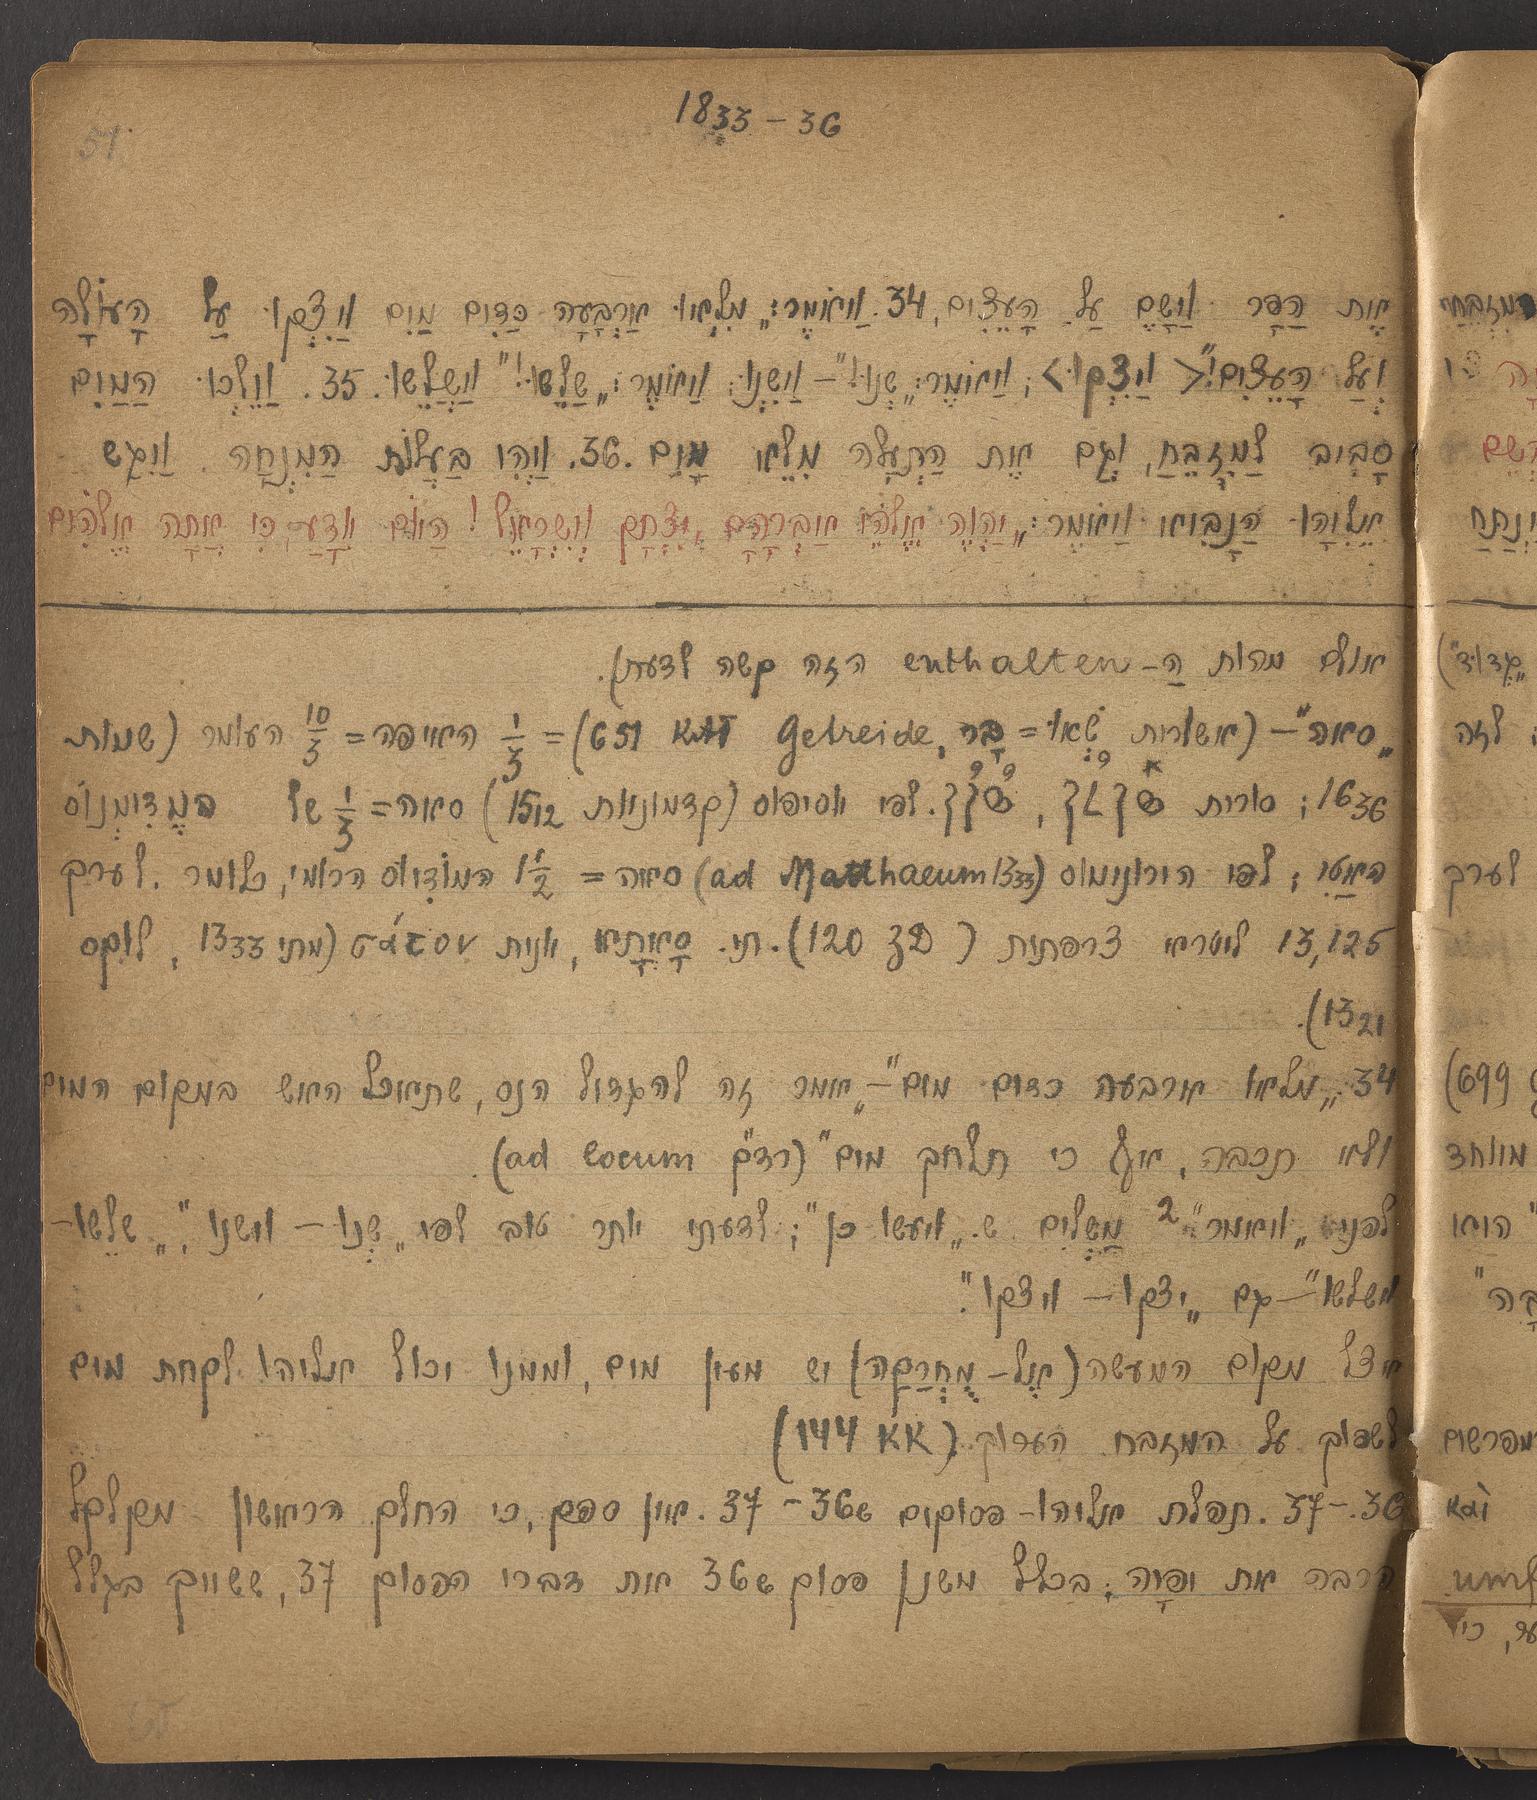 18₃₃ – ₃₆
51
אֶת הַפָּר וַיָּשֶׂם עַל הָעֵצִים, 34. וַיֹּאמֶר: „מִלְאוּ אַרְבָּעָה כַדִּים מַיִם וְיִצְקוּ עַל הָעוֹלָה
וְעַל הָעֵצִים!" <וַיִּצְקוּ>; וַיֹּאמֶר: „שְׁנוּ!" – וַיִּשְׁנוּ; וַיֹּאמֶר: „שַׁלֵּשׁוּ!" וַיְשַׁלֵּשׁוּ. 35. וַיֵּלְכוּ הַמַּיִם
סָבִיב לַמִּזְבֵּחַ, וְגַם אֶת הַתְּעָלָה מִלֵּא מָיִם. 36. וַיְהִי בַּעֲלוֹת הַמִּנְחָה. וַיִּגַּשׁ
אֵלִיָּהוּ הַנָּבִיא וַיֹּאמֶר: „יַהְוֶה אֱלֹהֵי אַבְרָהָם, יִצְחָק וְיִשְׂרָאֵל! הַיּוֹם יִוָּדַע, כִּי אַתָּה אֱלֹהִים
אולם מהות הַ– enthalten הזה קשה לדעת).
„סאה" – (אשורית שֶׁאוּ = בַּר, Getreide 651 KAT) = 1/3 האיפה = 10/3 העומר (שמות
16₃₆; סורית . לפי יוסיפוס (קדמוניות 15₁₂) סאה = 1/3 של המֶדִימְנוֹס
האַטי; לפי הירונימוס (ad Matthaeum 13₃₃) סאה = 1 1/2 המוֹדִיוּס הרומי, כלומר לערך
13,125 ליטרא צרפתית ( 120). תי. סָאתָא, יונית σάτον (מתי 13₃₃, לוקס
13₂₁).
34. „מלאו ארבעה כדים מים" – „אמר זה להגדול הנס, שתאכל האש במקום המים
ולא תכבה, אף כי תלחך מים" (רד"ק ad locum)
לפני „ויאמר"² מַשְׁלִים ש. „ויעשו כן"; לדעתי יותר טוב לפי „שְׁנוּ – וישנו", „שלֵּשו –
וישלשו" – גם „יצקו – ויצקו".
אצל מקום המעשה (אֶל–מֻחְרַקָה) יש מעין מים, וממנו יכול אליהו לקחת מים
לשפוך על המזבח הערוך (144 KK)
36–37. תפלת אליהו – פסוקים 36–37. אין ספק, כי החלק הראשון מקלקל
הרבה את יפיה; בכלל משנן פסוק 36 את דברי הפסוק 37, ששייך בגלל